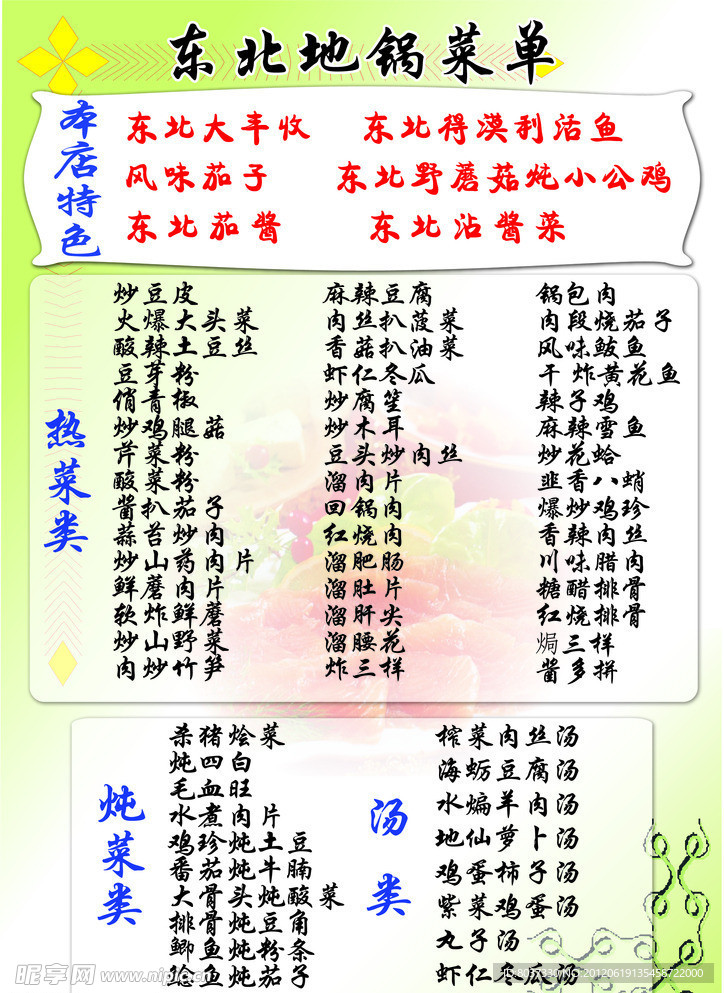 东北地锅菜单
本店特色
东北大丰收 东北得漠利活鱼
风味茄子 东北野蘑菇炖小公鸡
东北茄酱 东北沾酱菜
热菜类
炒豆皮
火爆大头菜
酸辣土豆丝
豆芽粉
俏青椒
炒鸡腿菇
芹菜粉
酸菜粉
酱扒茄子
蒜苔炒肉
炒山药肉片
鲜蘑肉片
软炸鲜蘑
炒山野菜
肉炒竹笋
麻辣豆腐
肉丝扒菠菜
香菇扒油菜
虾仁冬瓜
炒腐笙
炒木耳
豆头炒肉丝
溜肉片
回锅肉
红烧肉
溜肥肠
溜肚片
溜肝尖
溜腰花
炸三样
锅包肉
肉段烧茄子
风味鲅鱼
干炸黄花鱼
辣子鸡
麻辣雪鱼
炒花蛤
韭香八蛸
爆炒鸡珍
香辣肉丝
川味腊肉
糖醋排骨
红烧排骨
焗三样
酱多拼
炖菜类
杀猪烩菜
炖四白
毛血旺
水煮肉片
鸡珍炖土豆
番茄炖牛腩
大骨头炖酸菜
排骨炖豆角
鲫鱼炖粉条
鲶鱼炖茄子
汤类
榨菜肉丝汤
海蛎豆腐汤
水煸羊肉汤
地仙萝卜汤
鸡蛋柿子汤
紫菜鸡蛋汤
丸子汤
虾仁冬瓜汤
昵享网 www.nipic.cn